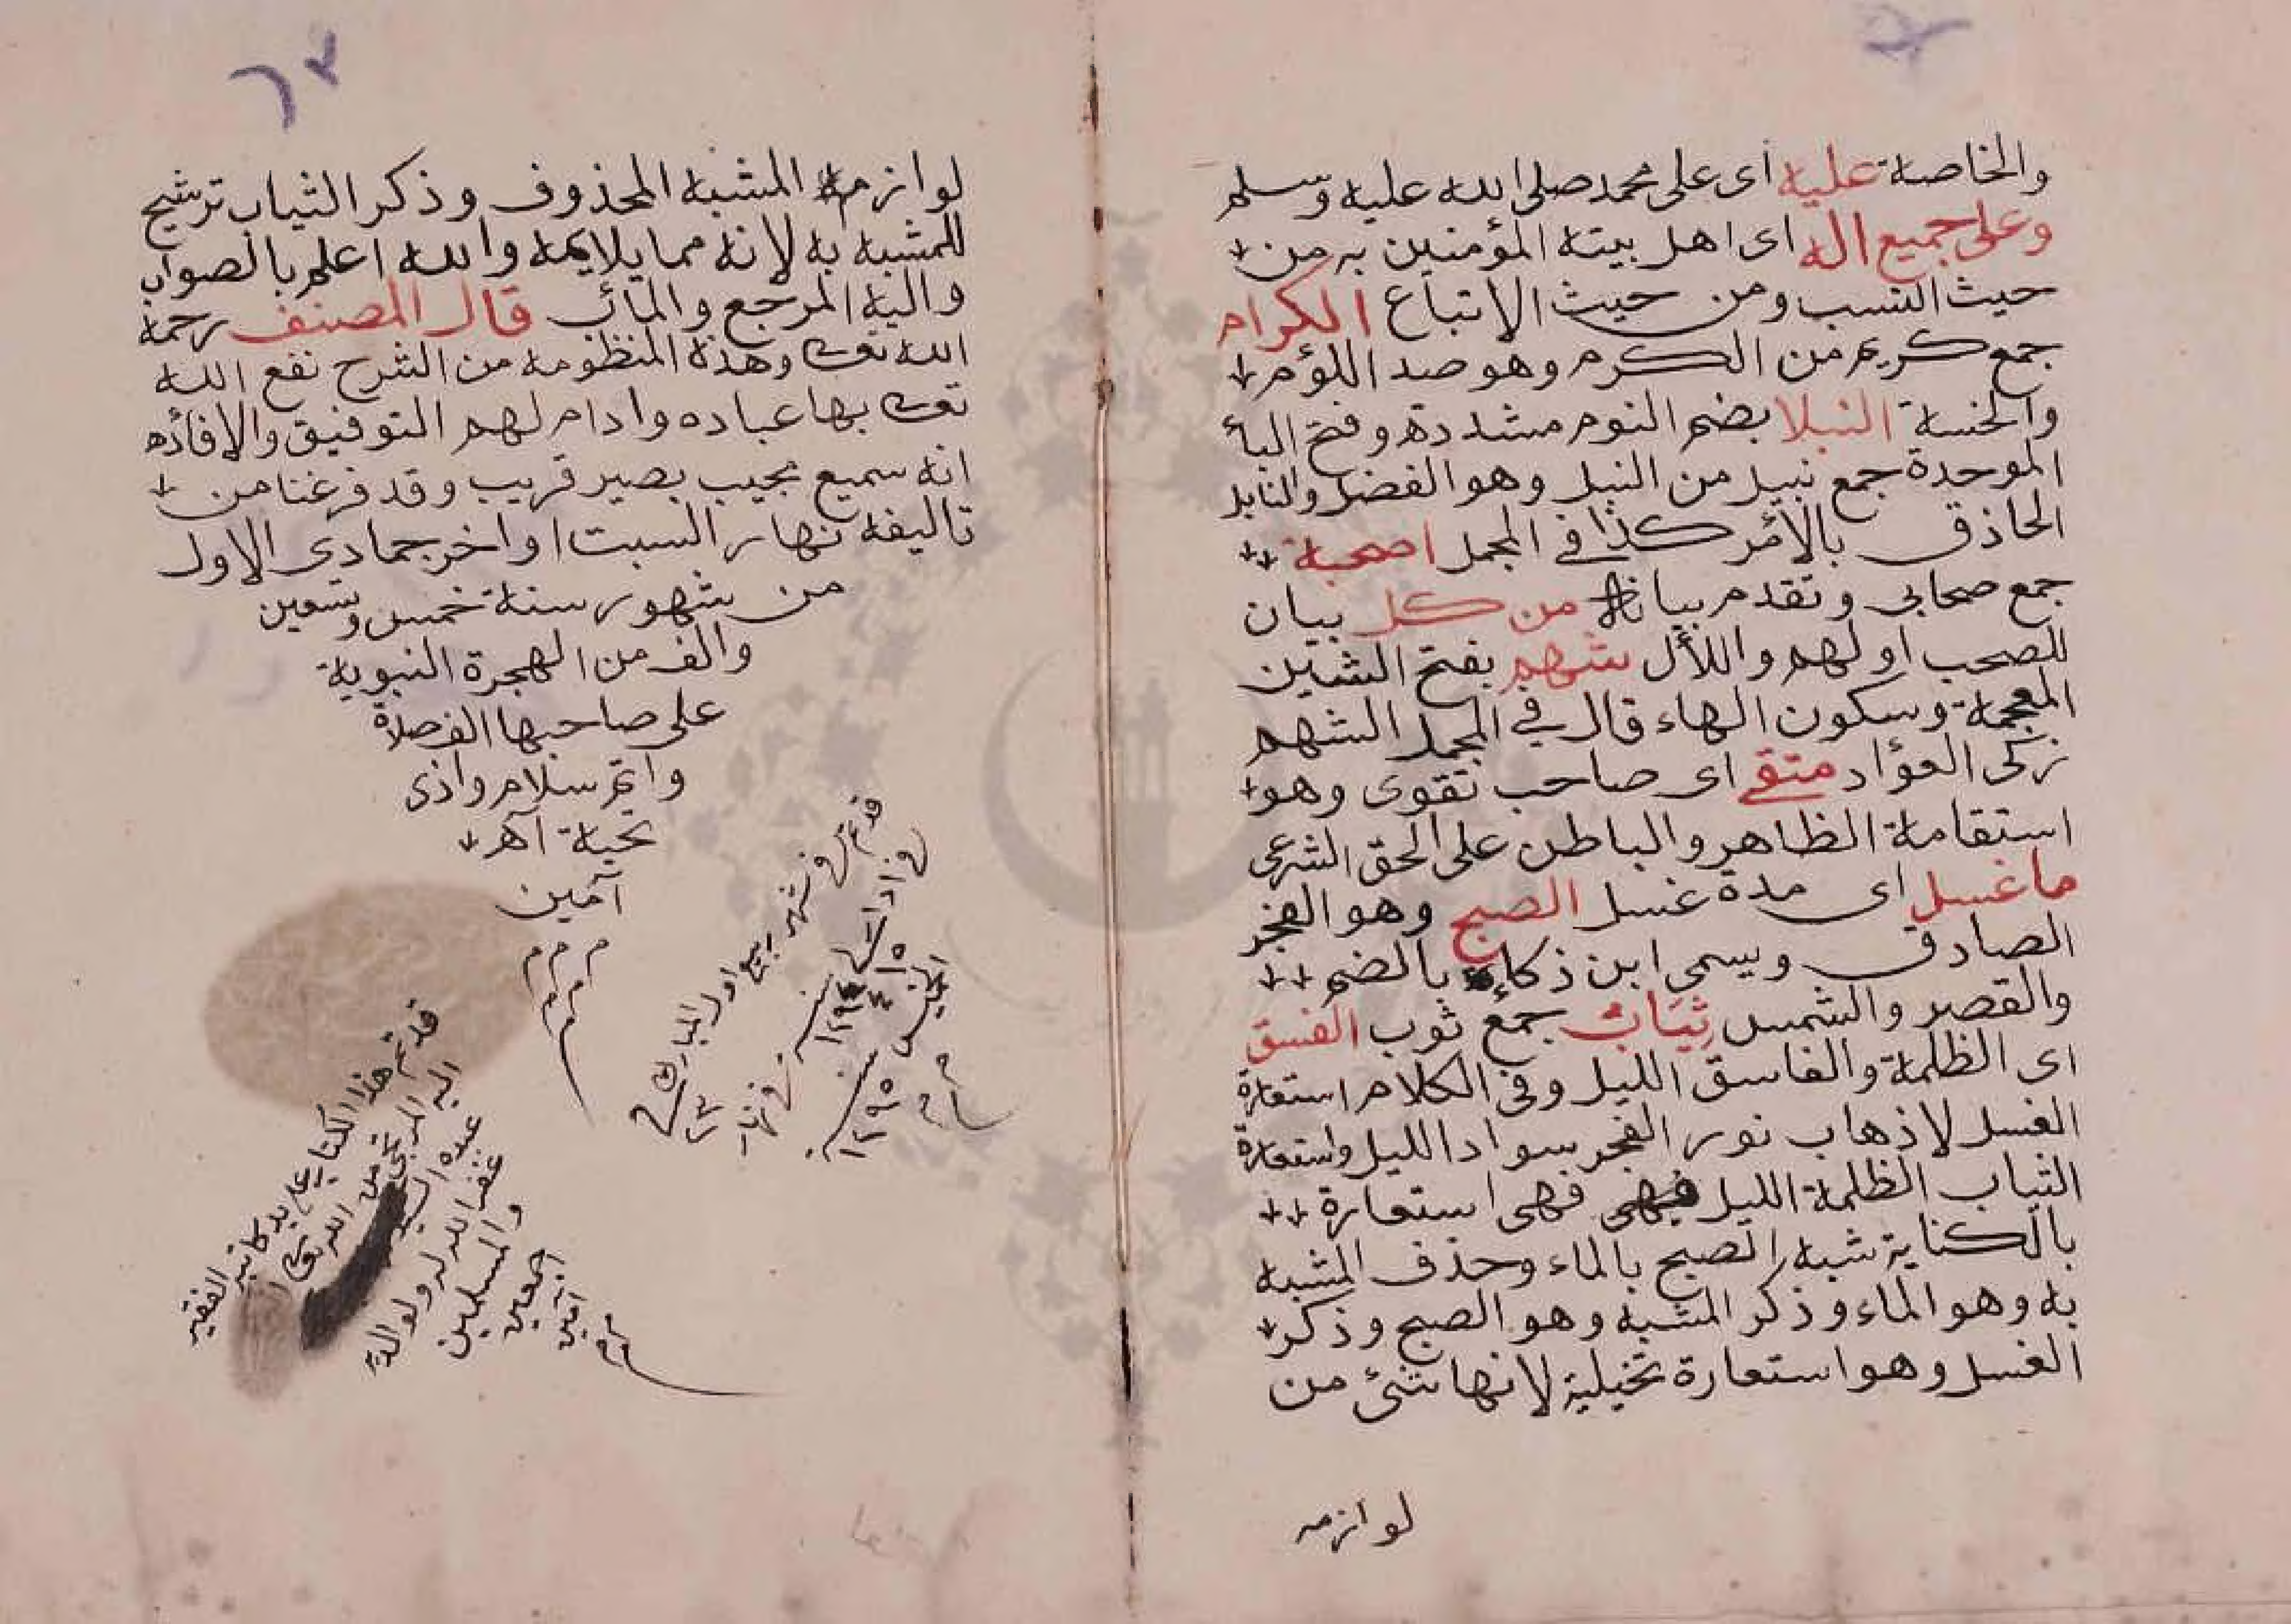 والخاصة عليه اى على محمد صلى الله عليه وسلم
وعلى جميع اله اى اهل بيته المؤمنين به من
حيث النسب ومن حيث الاتباع الكرام
جمع كريم من الكرم وهو ضد اللؤم
والخسة النبلا بضم النوم مشددة وفتح البأ
الموحدة جمع نبيل من النبل وهو الفضل والنابل
الحاذق بالأمر كذا في المجمل اصحبة
جمع صحابى وتقدم بيانه من كل بيان
للصحب اولهم واللأل شهم بفتح الشين
المعجمة وسكون الهاء قال في المجمل الشهم
زكى الفؤاد متقي اى صاحب تقوى وهو
استقامة الظاهر والباطن على الحق الشرعى
ما غسل اى مدة غسل الصبح وهو الفجر
الصادق ويسمى ابن ذكاء بالضم
والقصر والشمس ثياب جمع ثوب الغسق
اى الظلمة والغاسق الليل وفى الكلام استعارة
الغسل لاذهاب نور الفجر سواد الليل واستعارة
الثياب الظلمة الليل فهى استعارة
بالكناية شبه الصبح بالماء وحذف المشبه
به وهو الماء وذكر المشبه وهو الصبح وذكر
الغسل وهو استعارة تخيلية لانها شئ من
لوازمه
٦٢
لوازمه المشبه المحذوف وذكر الثياب ترشيح
للمشبه به لانه مما يلايمه والله اعلم بالصواب
واليه المرجع والمائب قال المصنف رحمة
الله تعالى وهذه المنظومة من الشرح نفع الله
تعالى بها عباده وادام لهم التوفيق والافأده
انه سميع مجيب بصير قريب وقد فرغنا من
تاليفه نهار السبت اواخر جمادى الاول
من شهور سنة خمس وتسعين
والف من الهجرة النبوية
على صاحبها الف صلاة
واتم سلام واذى
تحية اهـ
آمين
م م م
م م
م
قد تم هذا الكتاب على يد كاتبه الفقير
اليه المرتجى من الله تعالى
عبده السيد
غفر الله له ولوالديه
والمسلمين
اجمعين
آمين
شهر ربيع اول المبارك
سنة ١٢٩٤
سنة ١٢٩٥